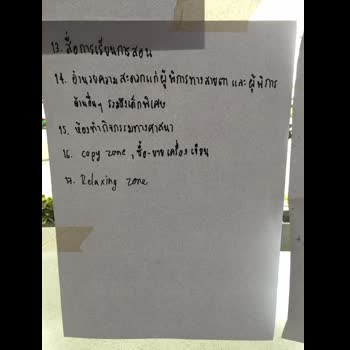 13. สื่อการเรียนการสอน
14. อำนวยความสะดวกแก่ผู้พิการทางสายตา และ ผู้พิการ
ด้านอื่นๆ รวมถึงเด็กพิเศษ
15. ห้องทำกิจกรรมทางศาสนา
16. copy zone , ซื้อ-ขายเครื่องเขียน
17. Relaxing zone